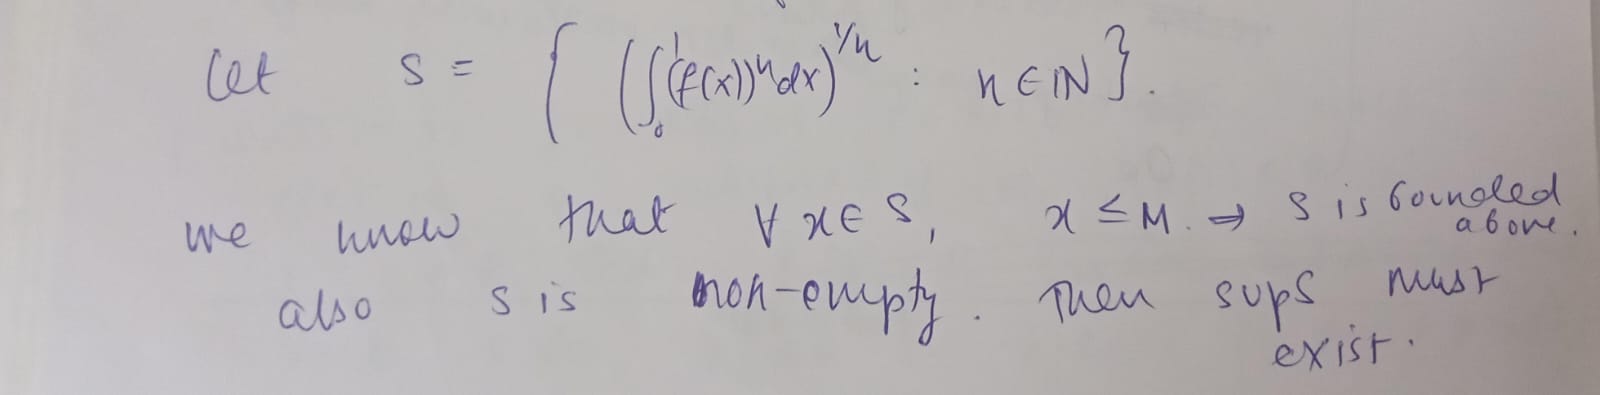 Let S = { (∫₀¹(f(x))ⁿdx)^{1/n} : n ∈ ℕ }.
we know that ∀ x ∈ S, x ≤ M. → S is bounded above.
also S is non-empty. Then sup S must exist.